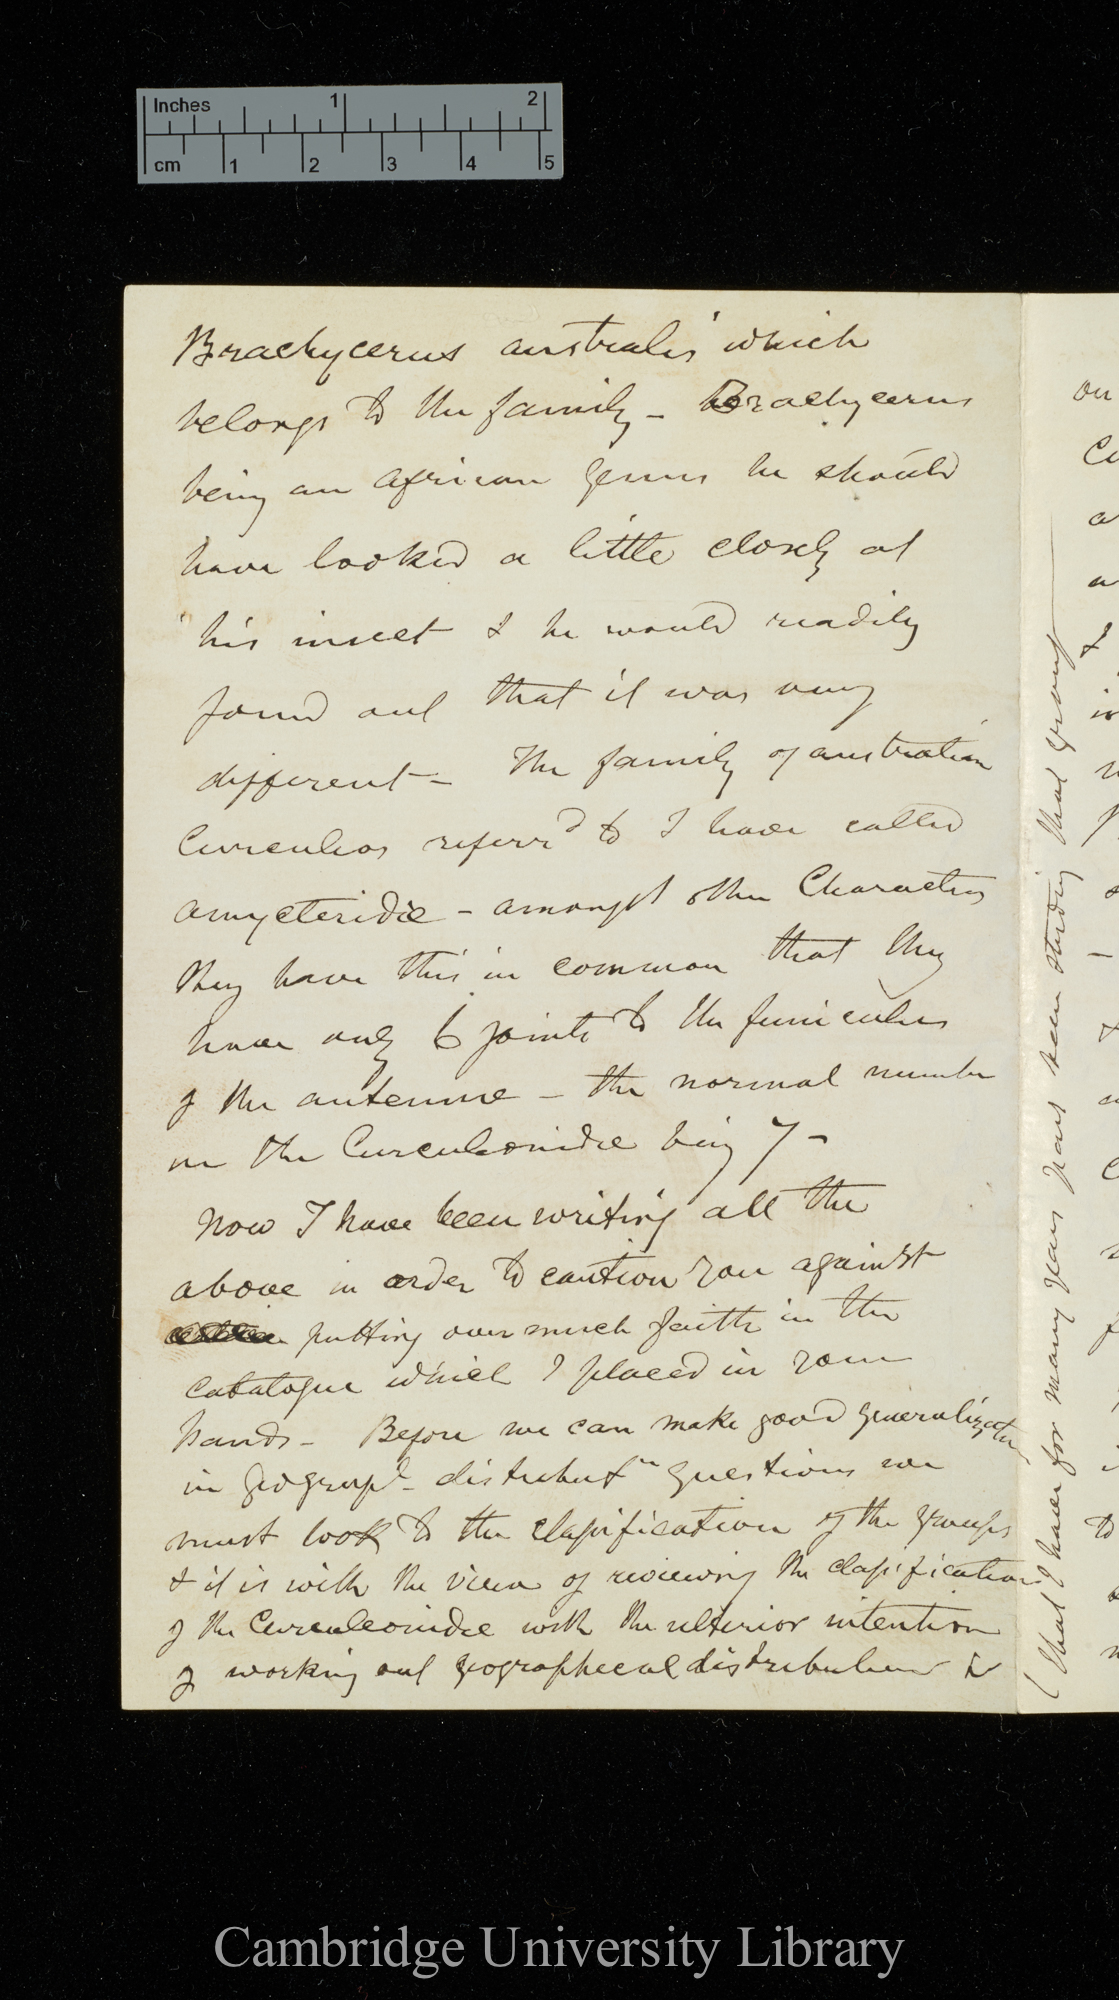 Inches 1 2
cm 1 2 3 4 5
Brachycerus australis' which
belongs to the family – Brachycerus
being an african genus he should
have looked a little closely at
his insect & he would readily
found out that it was very
different – The family of australian
Curculios referrd to I have called
amycteridæ – amongst other Characters
they have this in common that they
have only 6 joints to the funiculus
of the antennæ – the normal number
in the Curculionidæ being 7 –
Now I have been writing all the
above in order to caution you against
putting over much faith in the
catalogue which I placed in your
hands – Before we can make good generalizations
in geograpl. distributn questions we
must look to the classification of the groups
& it is with the view of reviewing the classification
of the Curculionidæ with the ulterior intention
of working out geographical distribution &c
(that I have for many years past been studying that group
on
to
Cambridge University Library